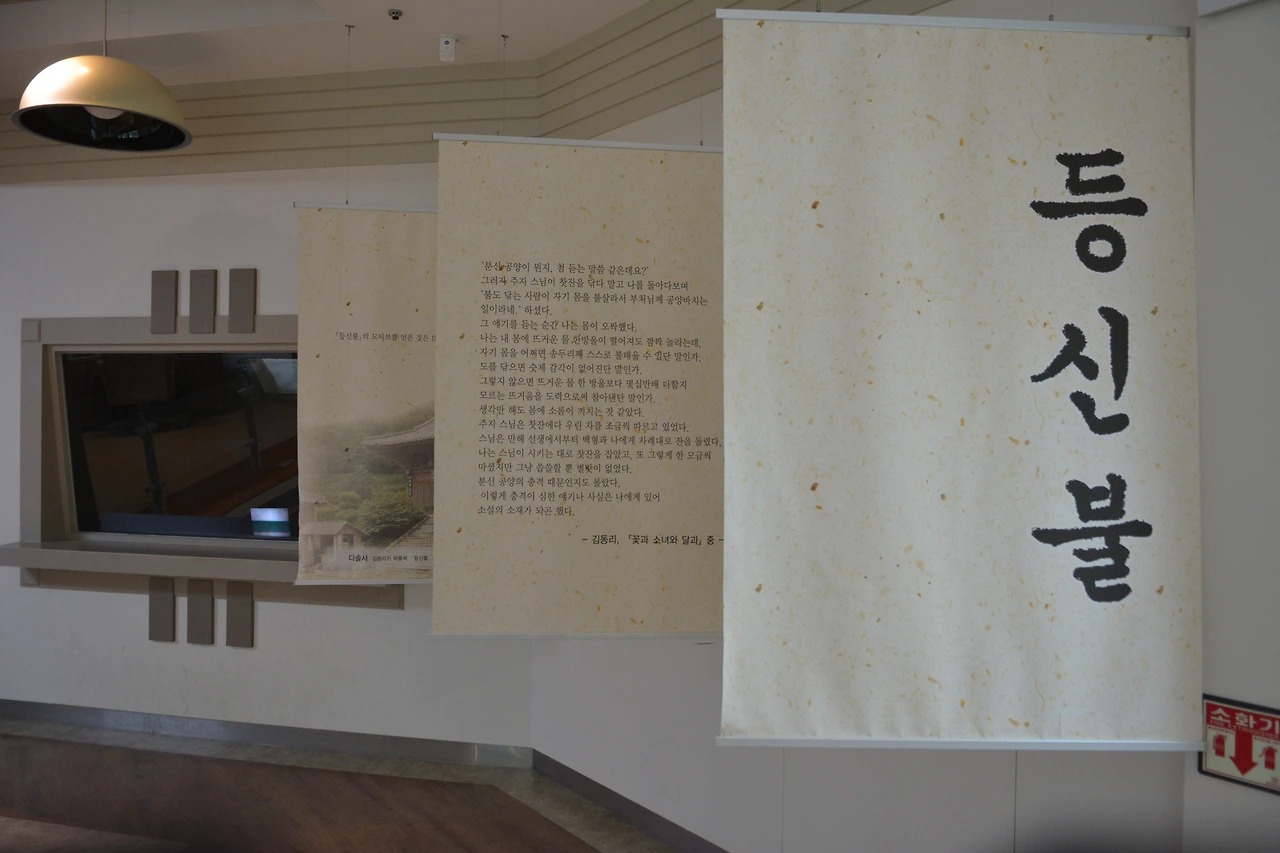 등
신
불
"분신 공양이 뭔지, 첨 듣는 말씀 같은데요?"
그러자 주지 스님이 찻잔을 닦다 말고 나를 돌아다보며
"불도 닦는 사람이 자기 몸을 불살라서 부처님께 공양바치는
일이라네." 하셨다.
그 얘기를 듣는 순간 나는 몸이 오싹했다.
나는 내 몸에 뜨거운 물 한방울이 떨어져도 깜짝 놀라는데,
자기 몸을 어쩌면 송두리째 스스로 불태울 수 있단 말인가.
도를 닦으면 숫제 감각이 없어진단 말인가.
그렇지 않으면 뜨거운 물 한 방울보다 몇십만배 더할지
모르는 뜨거움을 도력으로써 참아낸단 말인가.
생각만 해도 몸에 소름이 끼치는 것 같았다.
주지 스님은 찻잔에다 우린 차를 조금씩 따르고 있었다.
스님은 만해 선생에서부터 백형과 나에게 차례대로 잔을 돌렸다.
나는 스님이 시키는 대로 찻잔을 잡았고, 또 그렇게 한 모금씩
마셨지만 그냥 씁쓸할 뿐 별맛이 없었다.
분신 공양의 충격 때문인지도 몰랐다.
이렇게 충격이 심한 얘기나 사실은 나에게 있어
소설의 소재가 되곤 했다.
– 김동리, 「꽃과 소녀와 달과」 중 –
「등신불」의 모티브를 얻은 것은
다솔사 김동리가 머물며 「등신불」
소화기